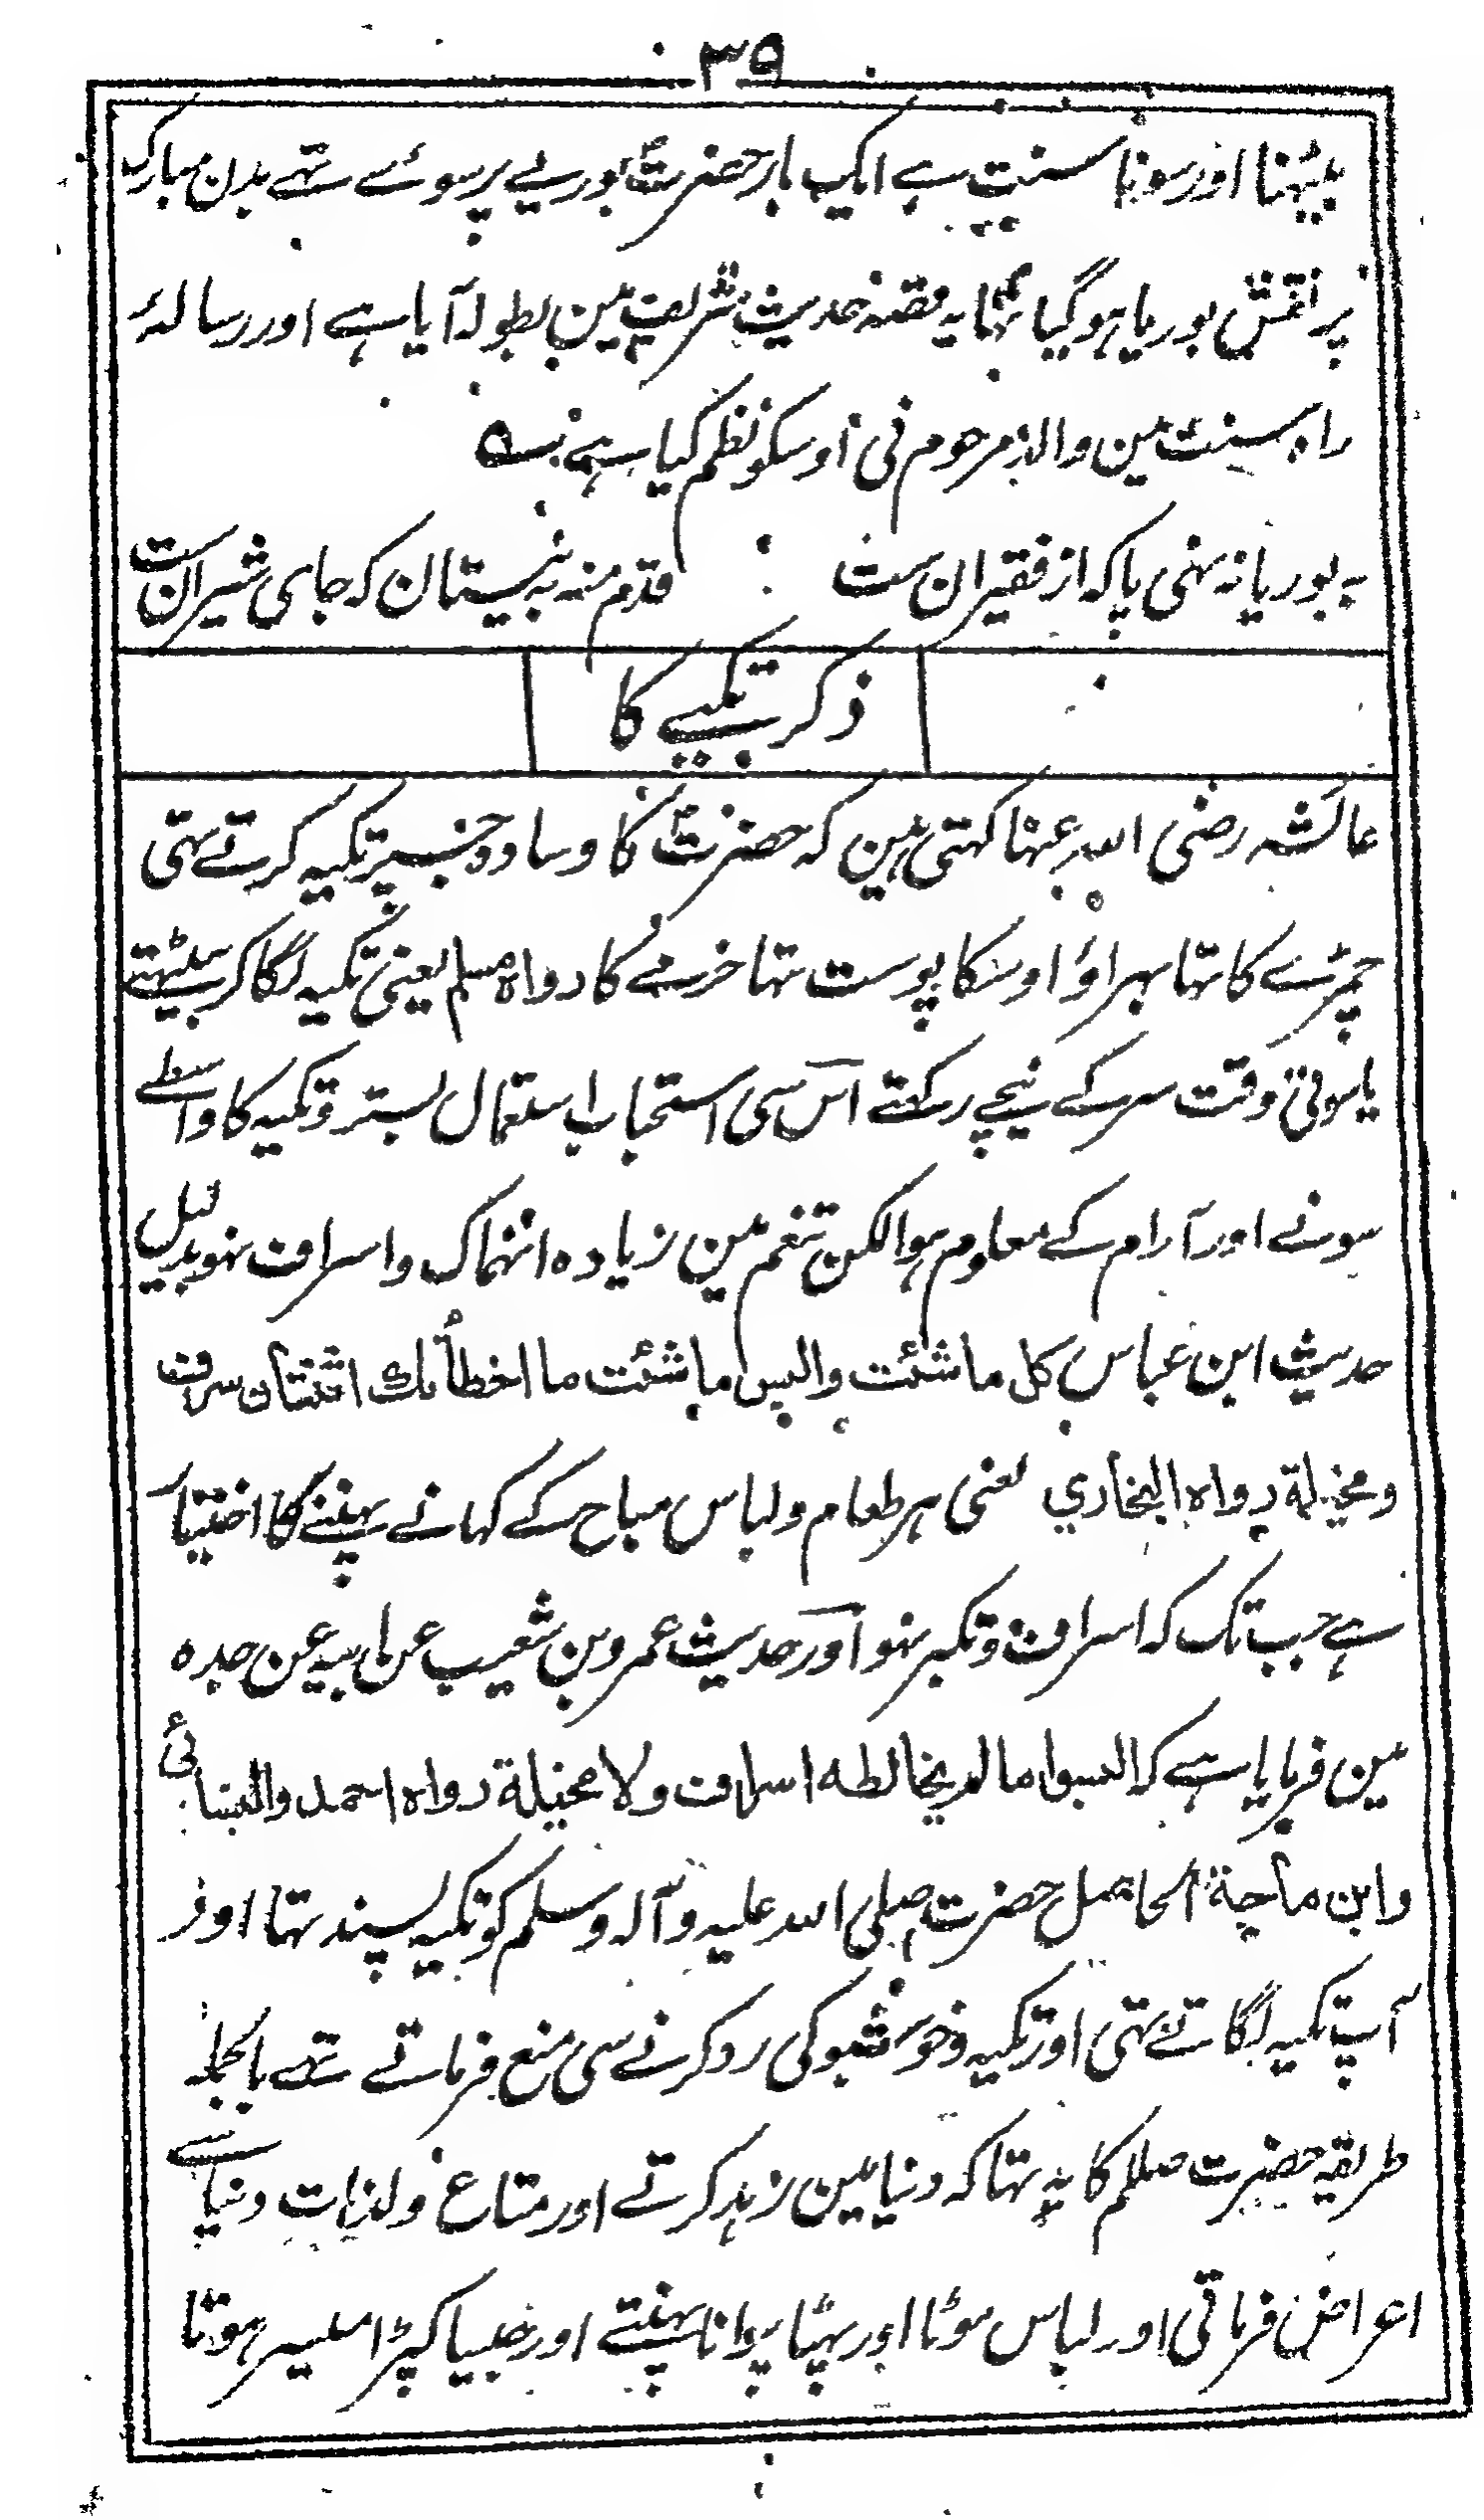 ۳۹
بیٹہنا اور سونا سنت ہے ایک بار حضرتؐ بوریے پر سوئے تہے بدن مبارک
پر نقش بوریا ہوگیا تہا یہ قصہ حدیث شریف مین بطولہ آیا ہے اور رسالۂ
راہ سنت مین والد مرحوم نی اوسکو نظم کیا ہے
بہ بوریا نہ نہی پا کہ از فقیران ست قدم منہ بہ نیستان کہ جای شیران ست
ذکر تکیے کا
عائشہ رضی اللہ عنہا کہتی ہین کہ حضرتؐ کا وسادہ جسپر تکیہ کرتے تہی
چمڑے کا تہا بہراؤ اوسکا پوست تہا خرمے کا رواہ مسلم یعنی تکیہ لگا کر بیٹہتے
یا سوتی وقت سر کے نیچے رکہتے اس سی استحباب استعمال بستر و تکیہ کا واسطے
سونے اور آرام کے معلوم ہوا لکن تنعم مین زیادہ انہماک و اسراف نہو بدلیل
حدیث ابن عباس کل ما شئت والبس ما شئت ما اخطأتك اثنتان سرف
ومخيلة رواه البخاري یعنی ہر طعام و لباس مباح کے کہانے پہننے کا اختیار
ہے جب تک کہ اسراف و تکبر نہو اور حدیث عمرو بن شعیب عن ابیہ عن جدہ
مین فرمایا ہے کہ البسوا ما لم يخالطه اسراف ولا مخيلة رواه احمد والنسائی
وابن ماجة الحاصل حضرت صلی اللہ علیہ وآلہ وسلم کو تکیہ پسند تہا اور
آپ تکیہ لگاتے تہی اور تکیہ و خوشبو کی رد کرنے سی منع فرماتے تہے بالجملہ
طریقہ حضرت صللم کا یہ تہا کہ دنیا مین زہد کرتے اور متاع و لذات دنیا سے
اعراض فرماتی اور لباس موٹا اور پہٹا پرانا پہنتے اور جیسا کپڑا میسر ہوتا